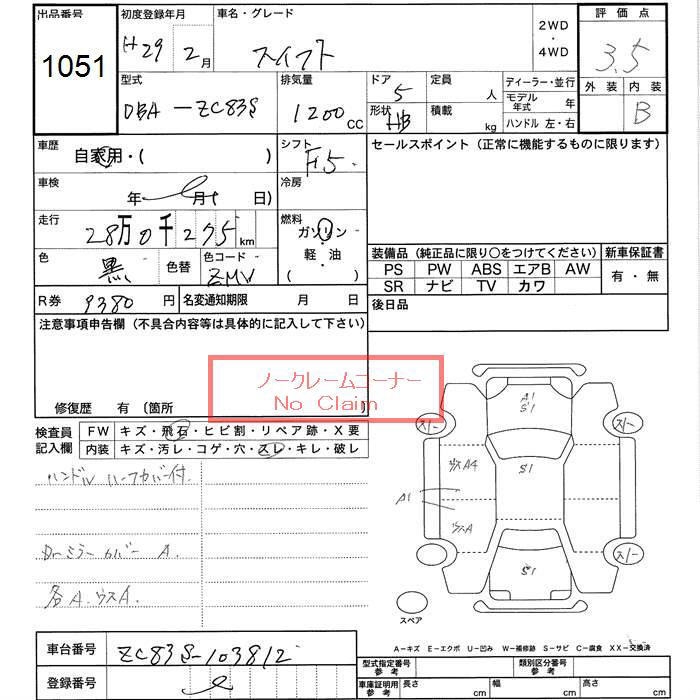 出品番号 初度登録年月 車名・グレード 2WD・4WD 評価点
1051 H29年 2月 スイフト 3.5
型式 排気量 ドア 定員 ディーラー・並行 外装 内装
DBA-ZC83S 1200CC 5 人 モデル年式 年 B
形状 HB 積載 kg ハンドル 左・右
車歴 自家用・( ) シフト F5 セールスポイント(正常に機能するものに限ります)
車検 年 月( 日) 冷房
走行 28万0千275km 燃料 ガソリン・軽油 ( )
色 黒 色替 色コード ZMV
装備品(純正品に限り○をつけてください) 新車保証書
PS PW ABS エアB AW 有・無
SR ナビ TV カワ
R券 9380円 名変通知期限 月 日 後日品
注意事項申告欄(不具合内容等は具体的に記入して下さい)
ノークレームコーナー
No Claim
修復歴 有〔箇所
検査員記入欄 FW キズ・飛石・ヒビ割・リペア跡・X要
内装 キズ・汚レ・コゲ・穴・スレ・キレ・破レ
ハンドル ハーフカバー付
ドアミラーカバー A.
各A.ウスA.
A1
S1
スノー スノー
ウスA4 S1
A1
ウスA
スノー
S1
スペア
A-キズ E-エクボ U-凹み W-補修跡 S-サビ C-腐食 XX-交換済
車台番号 ZC83S-103812
登録番号
型式指定番号 参考 類別区分番号 参考
車庫証明用 参考 長さ cm 幅 cm 高さ cm